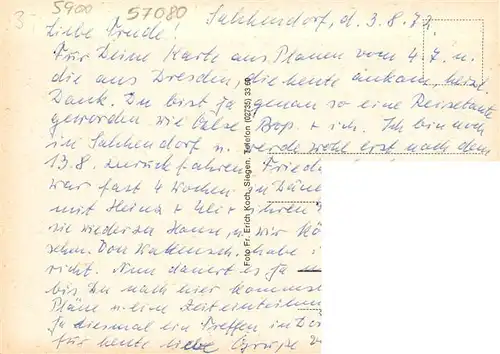 3-
5900
57080
Salchendorf, d. 3.8.72.
Liebe Trude!
Für Deine Karte aus Plauen vom 4.7. u.
die aus Dresden, die heute ankam, herzl.
Dank. Du bist ja genau so eine Reisetante
geworden wie + ich. Ich bin noch
in Salchendorf u. werde wohl erst nach dem
13.8. zurückfahren. Fried
war fast 4 Wochen in Däne
mit Heinz + ihren
sie wieder zu Hause, u. wir
sehen. Von habe i
richt. Nun dauert es ja
bis Du nach hier komms
Pläne u. eine Zeiteinteilun
ja diesmal ein Treffen in
für heute liebe Grüße
Foto Fr. Erich Koch, Siegen, Telefon (02735) 33 60